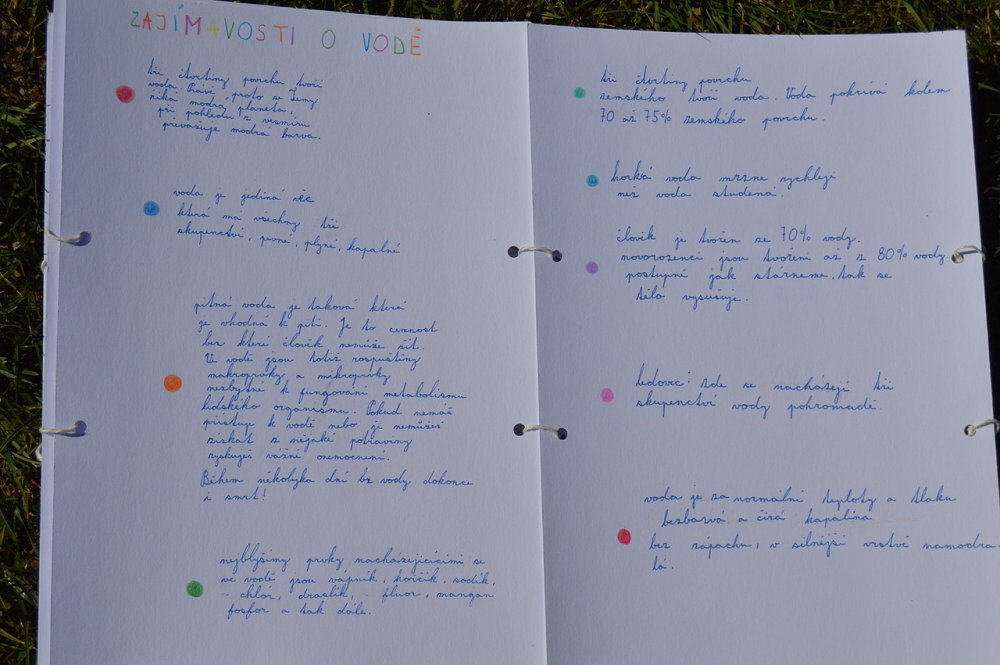 ZAJÍMAVOSTI O VODĚ
tři čtvrtiny povrchu tvoří
voda. Právě proto se Zemy
říká modrá planeta,
při pohledu z vesmíru
převašuje modrá barva.
voda je jediná věc
která má všechny tři
skupenství, pevné, plyné, kapalné
pitná voda je taková která
je vhodná k pití. Je to cennost
bez které člověk nemůže žít.
Ve vodě jsou totiž rospuštěny
makroprvky a mikroprvky
nesbytné k fungování metabolismu
lidského organismu. Pokud nemáš
přístup k vodě nebo ji nemůžeš
získat z nějaké potraviny
zyskuješ vážné onemocnění.
Během několyka dní bz vody dokonce
i smrt!
nejblyšímy prvky nacházejícícími se
ve vodě jsou vápník, hořčík, sodík,
chlór, draslík, fluor, mangan
fosfor a tak dále.
tři čtvrtiny povrchu
zemského tvoří voda. Voda pokrývá kolem
70 až 75% zemského povrchu.
horká voda mrzne rychleji
než voda studená.
člověk je tvořen ze 70% vody.
novorozenci jsou tvořeni až z 80% vody.
postupně jak stárneme, tak se
tělo vysušuje.
ledovec: zde se nacházejí tři
skupenství vody pohromadě.
voda je za normální teploty a tlaku
bezbarvá a čirá kapalina
bez zápachu, v silnější vrstvě namodra-
lá.